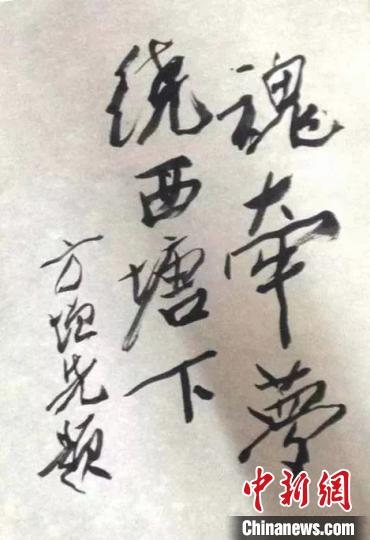 魂牵夢
绕西塘下
方增先题
中新网
Chinanews.com